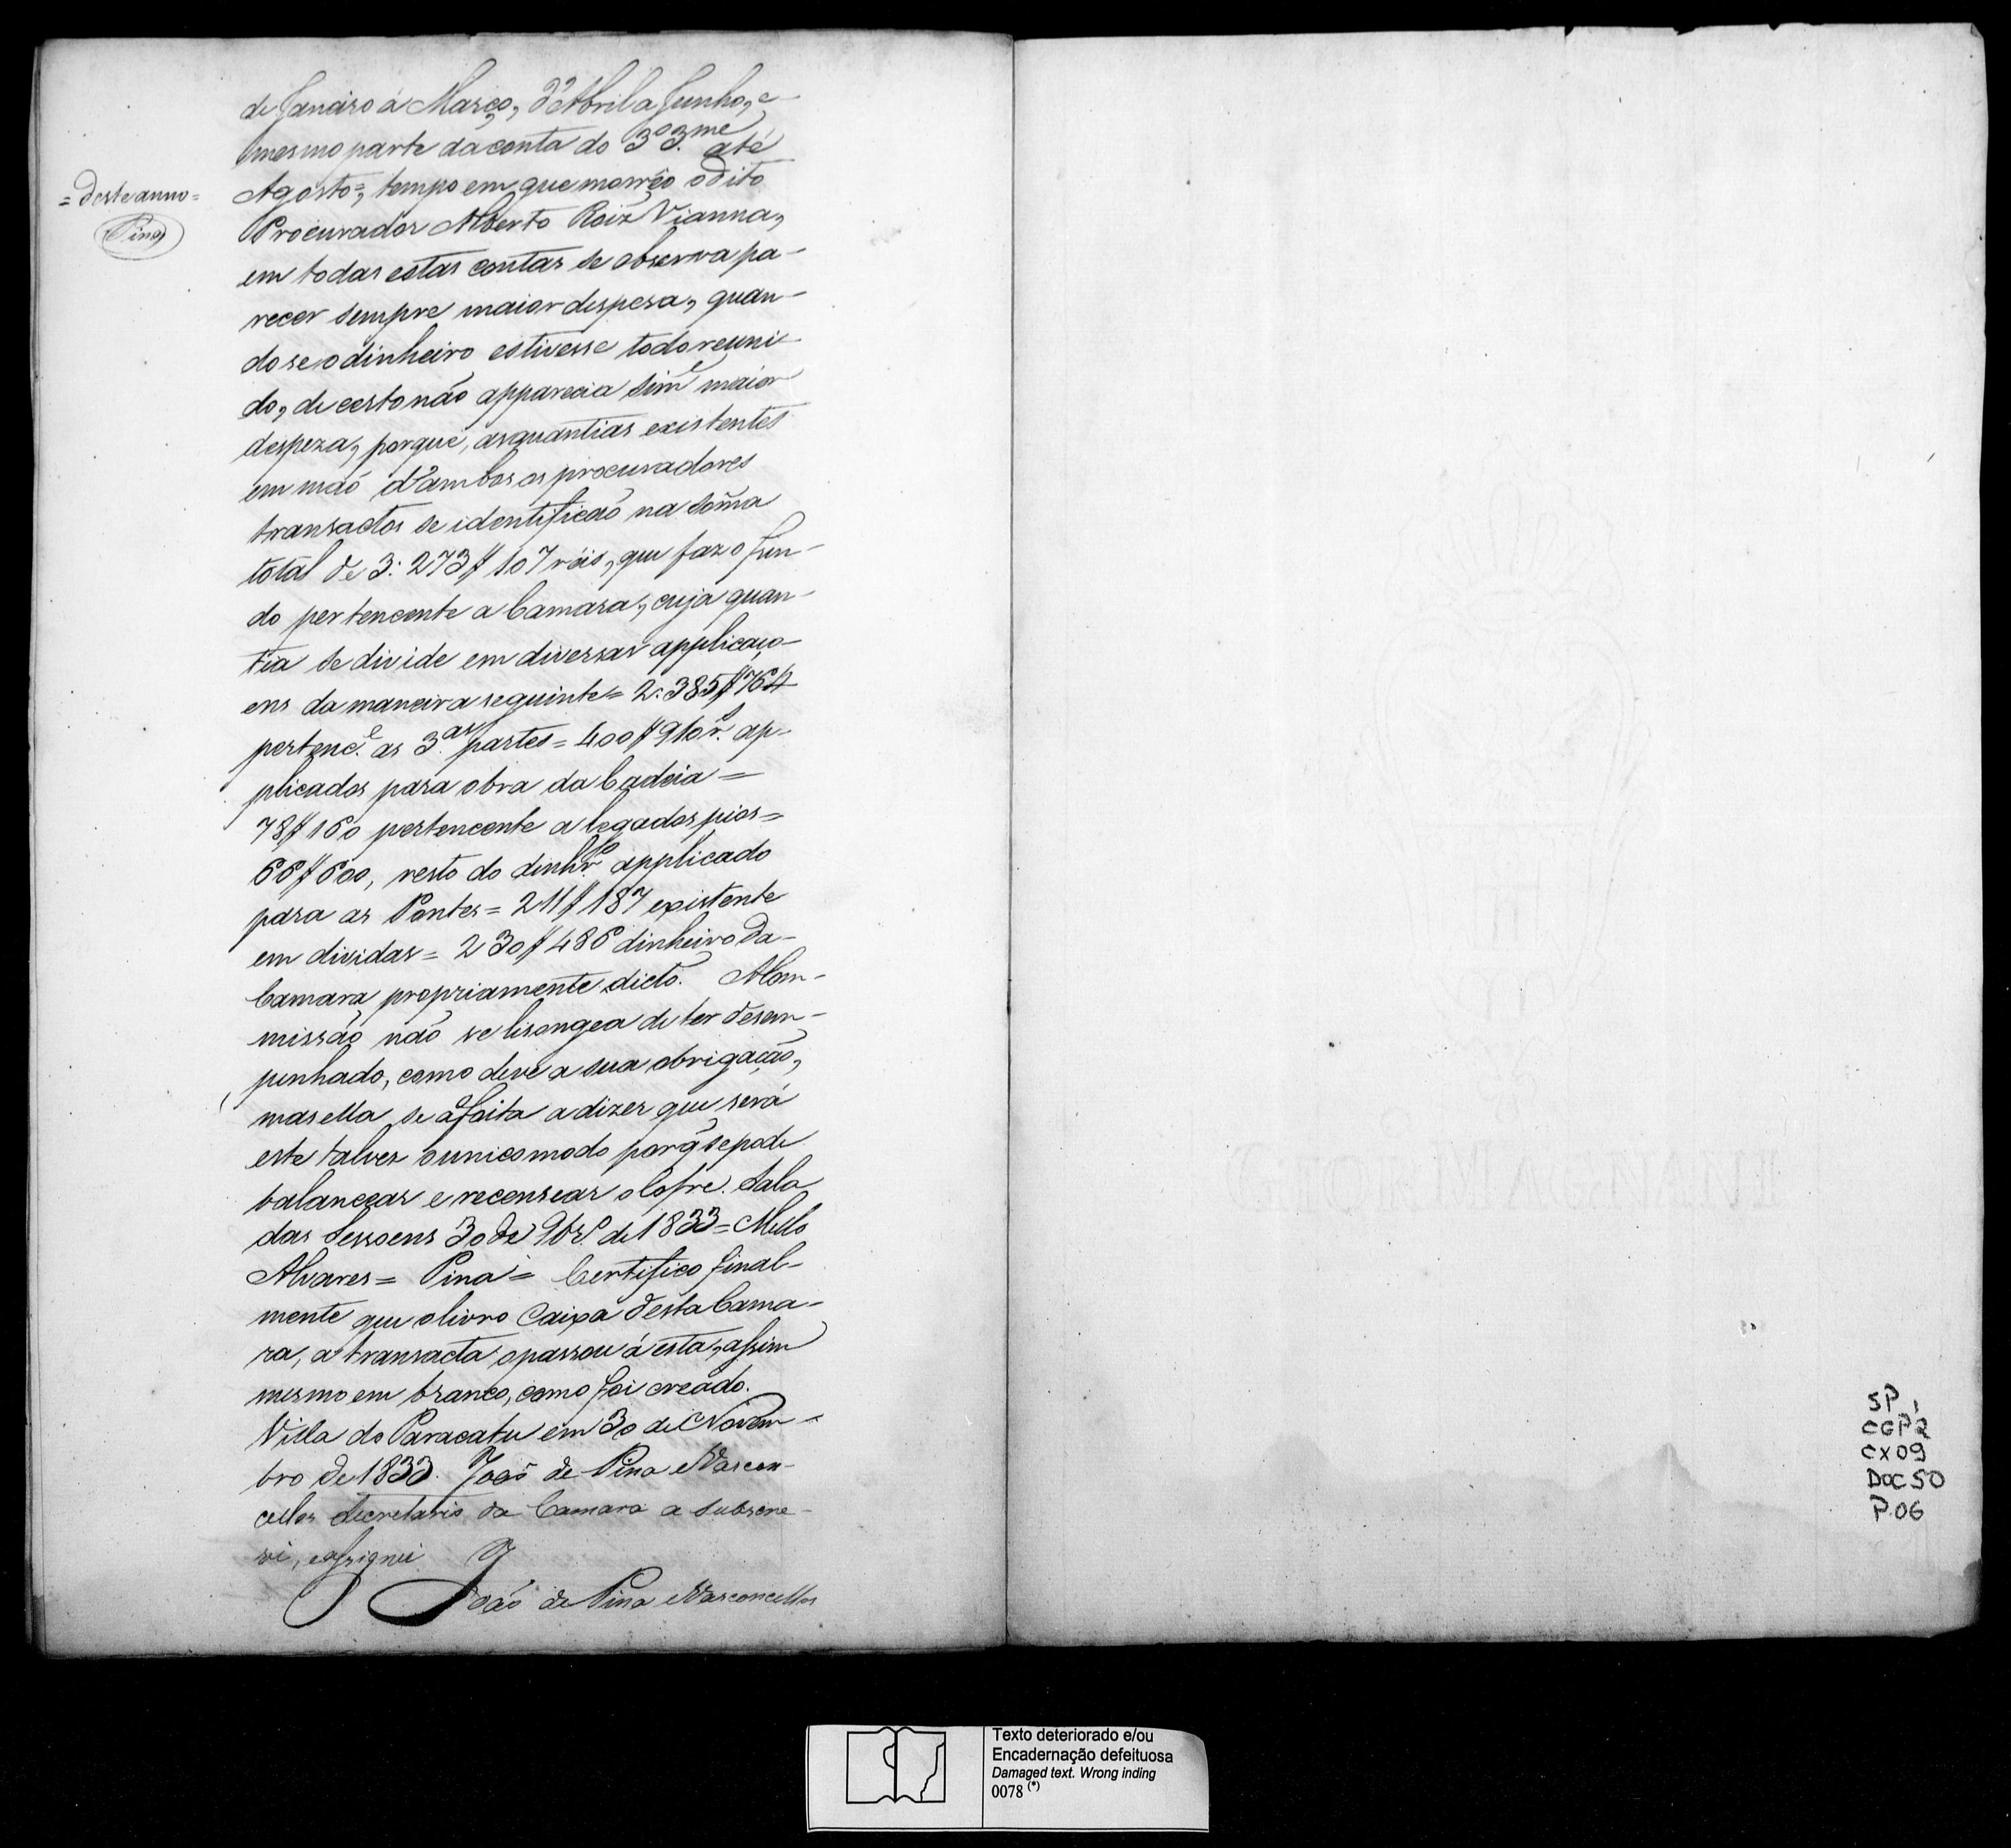 de Janeiro á Março, d'Abril a Junho, e
mesmo parte da conta do 3º 3.me até
= deste anno =
Pina
Agosto =, tempo em que morrêo o dito
Procurador Alberto Roiz Vianna,
em todas estas contas se observa pa-
recer sempre maior despesa, quan-
do se o dinheiro estivesse todo reuni-
do, de certo não apparecia sim.e maior
despeza, porque, as quantias existentes
em mão d'ambos os procuradores
transactos se identificão na somma
total de 3:273$107 réis, que faz o fun-
do pertencente a Camara, cuja quan-
tia se divide em diversas applicaço-
ens da maneira seguinte = 2:385$764
pertenc.e as 3.as partes = 400$910 r.s ap-
plicados para obra da Cadeia =
78$160 pertencente a legados pios =
66$600, resto do dinhr.o applicado
para as Pontes = 211$187 existente
em dividas = 230$486 dinheiro da-
Camara propriamente dicto. A Com-
missão não se lisongea de ter desem-
penhado, como deve a sua obrigação,
mas ella se afoita a dizer que será
este talvez o unico modo por q̃ se pode
balancear e recensear o Cofre. Sala
das Sessoens 30 de 9br.o de 1833 = Mello
Alvares = Pina = Certifico final-
mente que o livro Caixa desta Cama-
ra, a transacta o passou á esta, assim
mesmo em branco, como foi creado.
Villa do Paracatu em 30 de Novem-
bro de 1833. João de Pina e Vascon-
cellos Secretario da Camara a subscre-
vi, e assignei
João de Pina e Vasconcellos
SP
CGP2
CX09
DOC 50
P.06
Texto deteriorado e/ou
Encadernação defeituosa
Damaged text. Wrong inding
0078 (*)